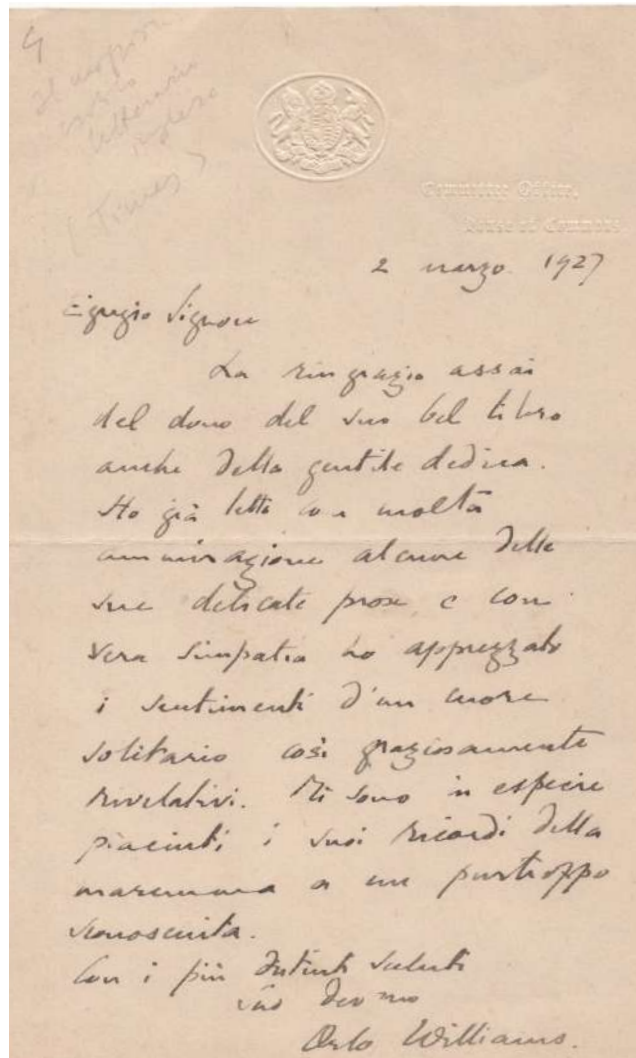 Committee Office,
House of Commons.
2 marzo. 1927
Egregio Signore
La ringrazio assai
del dono del suo bel libro
anche della gentile dedica.
Ho già letto con molta
ammirazione alcune delle
sue delicate prose, e con
vera simpatia ho apprezzato
i sentimenti d'un cuore
solitario così graziosamente
rivelativi. Mi sono in especie
piaciuti i suoi ricordi della
maremma a me purtroppo
sconosciuta.
Con i più distinti saluti
suo devmo
Orlo Williams.
(Times)